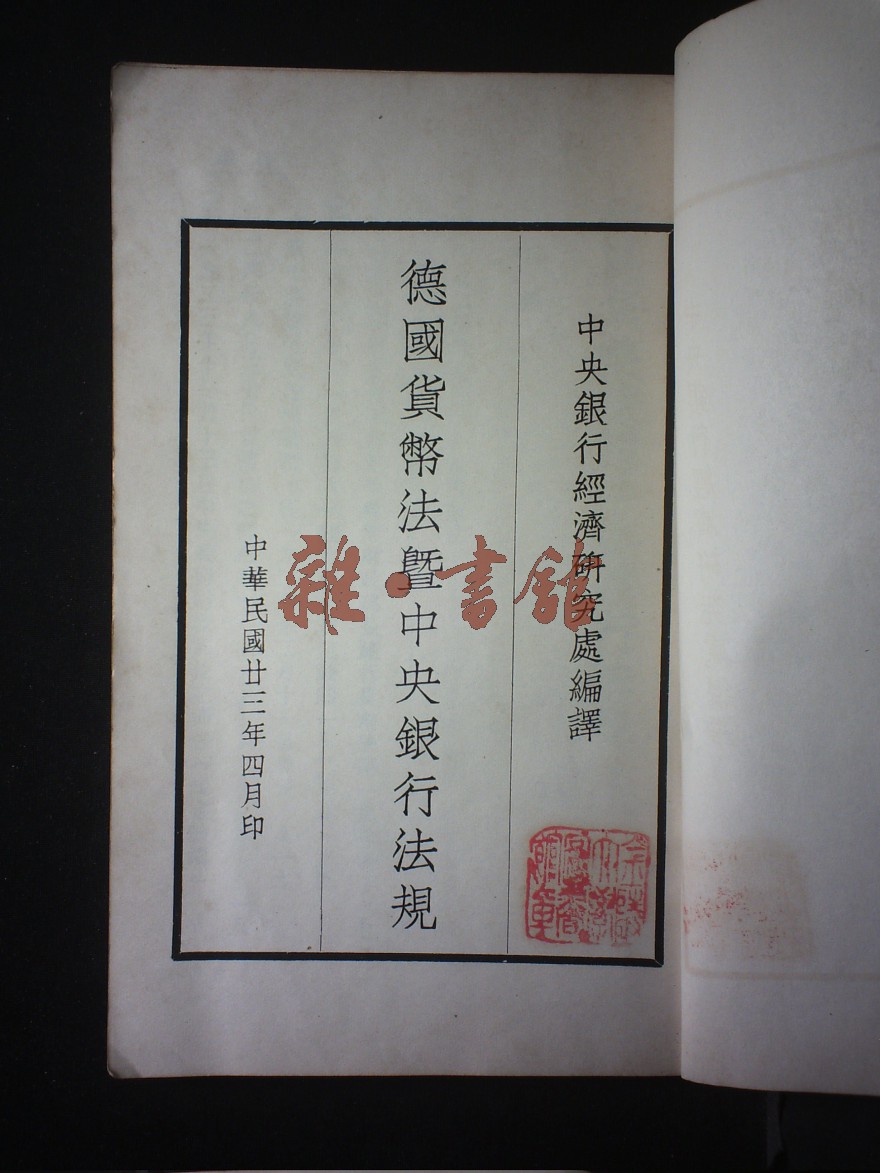 中央銀行經濟研究處編譯
德國貨幣法暨中央銀行法規
中華民國廿三年四月印
雜·書館